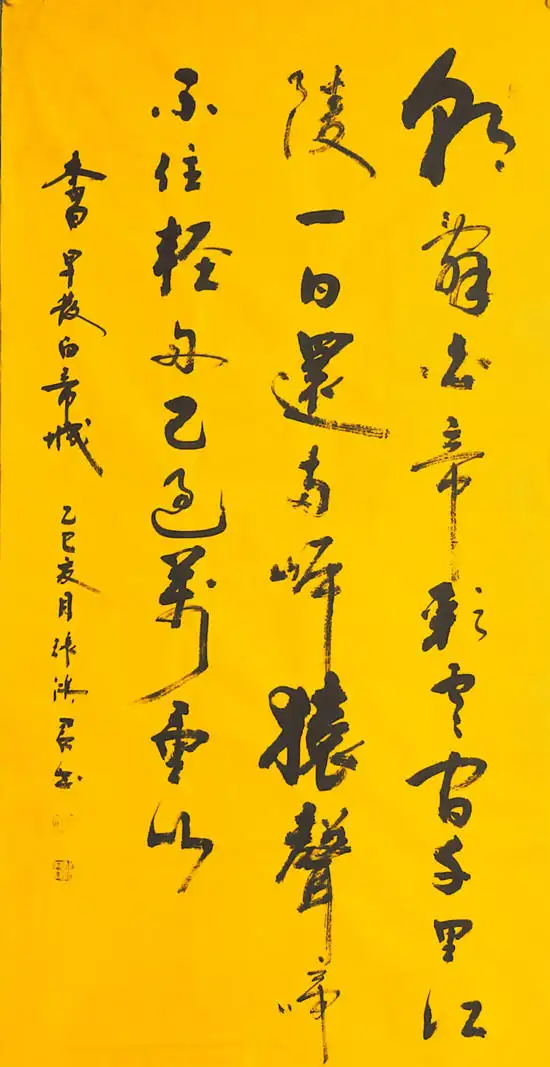 朝辭白帝彩雲間千里江
陵一日還兩岸猿聲啼
不住輕舟已過萬重山
李白早發白帝城
乙巳亥月張鴻君書